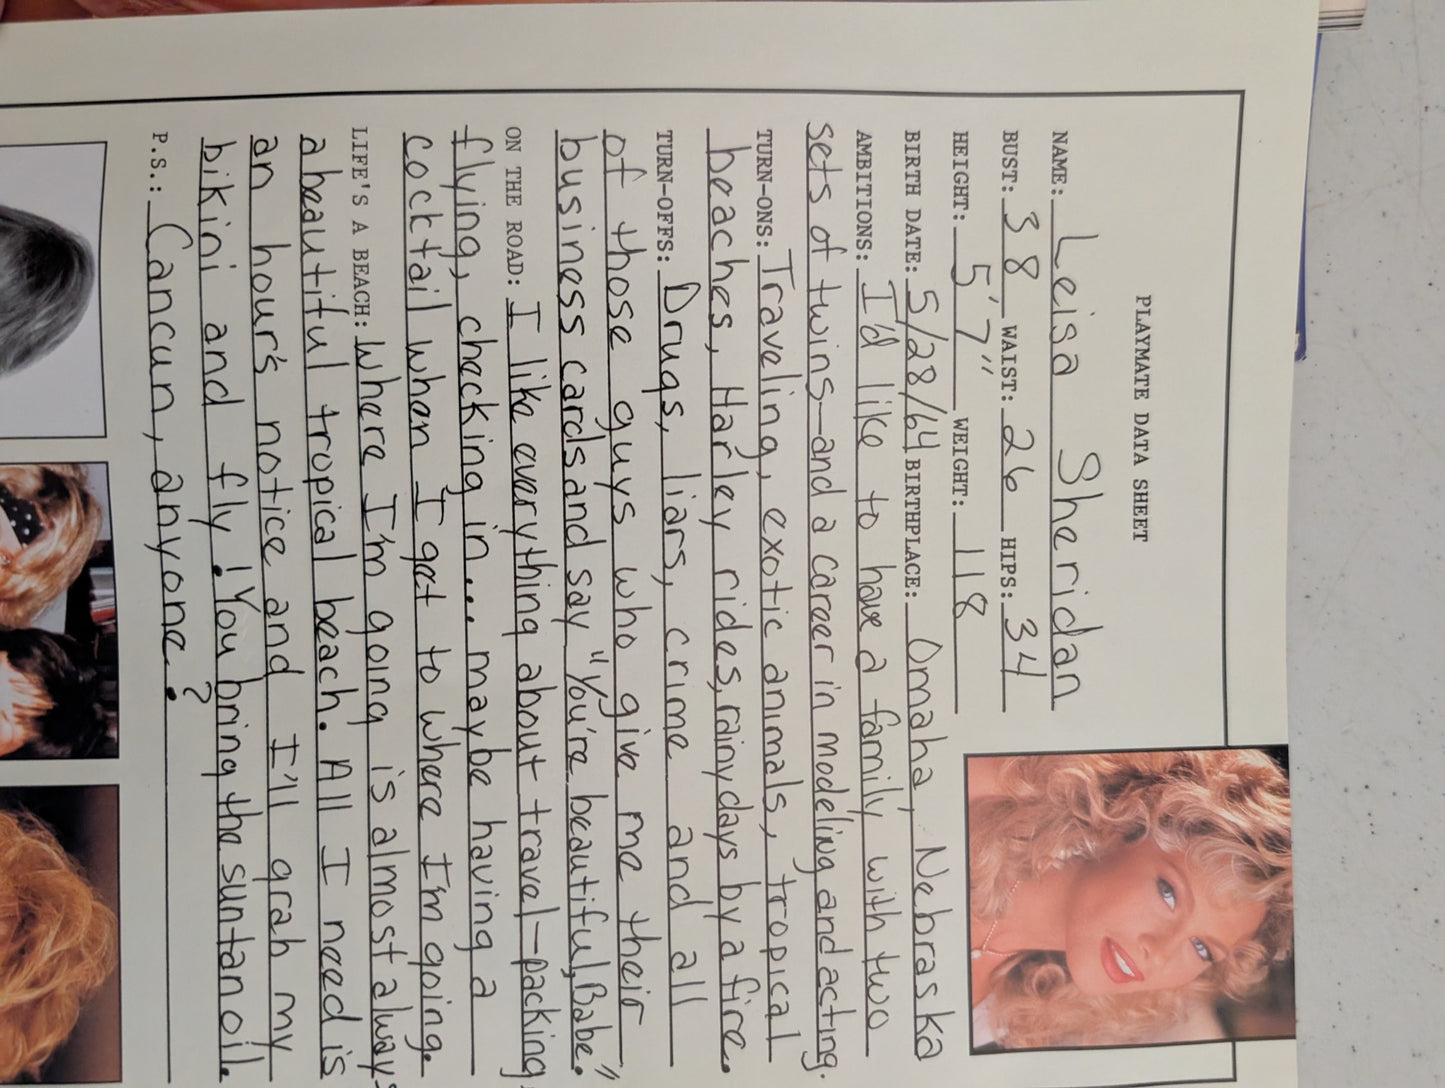 PLAYMATE DATA SHEET
NAME: Leisa Sheridan
BUST: 38 WAIST: 26 HIPS: 34
HEIGHT: 5'7" WEIGHT: 118
BIRTH DATE: 5/28/64 BIRTHPLACE: Omaha, Nebraska
AMBITIONS: I'd like to have a family with two
sets of twins—and a career in modeling and acting.
TURN-ONS: Traveling, exotic animals, tropical
beaches, Harley rides, rainy days by a fire.
TURN-OFFS: Drugs, liars, crime and all
of those guys who give me their
business cards and say "You're beautiful, Babe."
ON THE ROAD: I like everything about travel—packing,
flying, checking in... maybe having a
cocktail when I get to where I'm going.
LIFE'S A BEACH: Where I'm going is almost always
a beautiful tropical beach. All I need is
an hour's notice and I'll grab my
bikini and fly! You bring the suntan oil.
P.S.: Cancun, anyone?